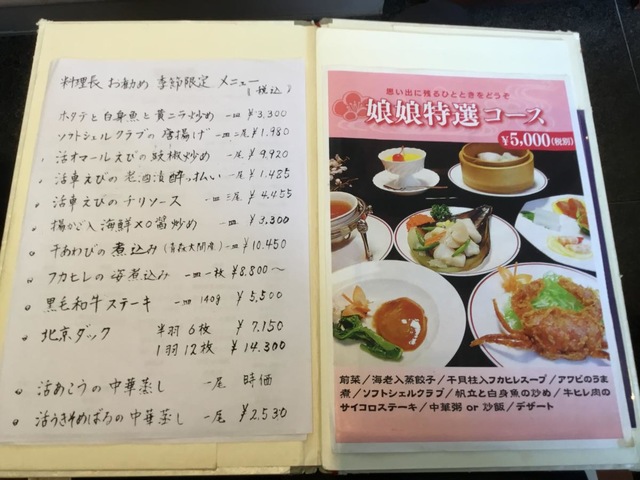 料理長 お勧め 季節限定 メニュー
(税込)
ホタテと白身魚と黄ニラ炒め 一皿 ¥3,300
ソフトシェルクラブの唐揚げ 一皿二尾 ¥1,980
活オマールえびの豉椒炒め 一尾 ¥9,920
活車えびの老酒漬酔っ払い 一尾 ¥1,485
活車えびのチリソース 一皿 三尾 ¥4,455
揚かご入海鮮XO醤炒め 一皿 ¥3,300
干あわびの煮込み(青森大間産) 一皿 ¥10,450
フカヒレの姿煮込み 一皿一枚 ¥8,800~
黒毛和牛ステーキ 一皿 140g ¥5,500
北京ダック 半羽 6枚 ¥7,150
1羽 12枚 ¥14,300
活あこうの中華蒸し 一尾 時価
活うきそめばるの中華蒸し 一尾 ¥2,530
思い出に残るひとときをどうぞ
娘娘特選コース
¥5,000(税別)
前菜/海老入蒸餃子/干貝柱入フカヒレスープ/アワビのうま
煮/ソフトシェルクラブ/帆立と白身魚の炒め/牛ヒレ肉の
サイコロステーキ/中華粥 or 炒飯/デザート